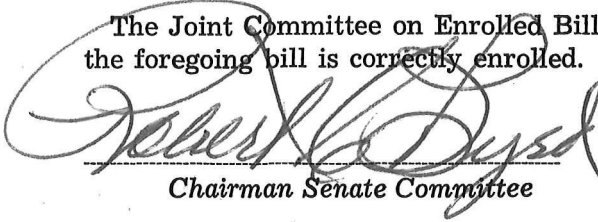 The Joint Committee on Enrolled Bill
the foregoing bill is correctly enrolled.
Robert C Byrd
Chairman Senate Committee